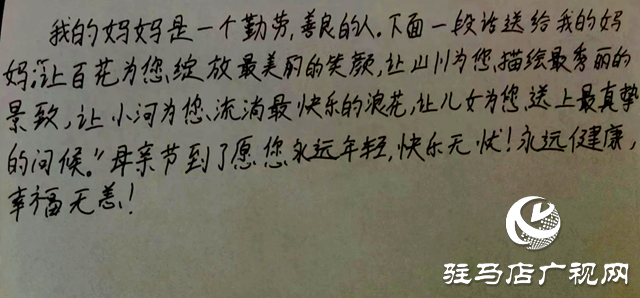 我的妈妈是一个勤劳,善良的人。下面一段话送给我的妈
妈:"让百花为您绽放最美丽的笑颜,让山川为您描绘最秀丽的
景致,让小河为您流淌最快乐的浪花,让儿女为您送上最真挚
的问候。"母亲节到了愿您永远年轻,快乐无忧!永远健康,
幸福无恙!
驻马店广视网